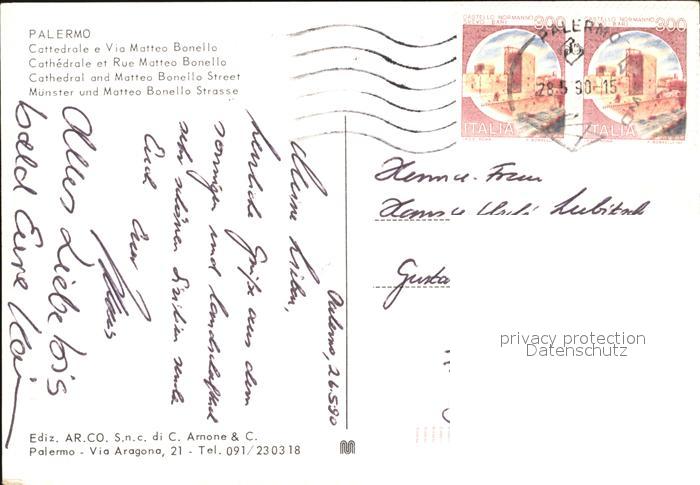 PALERMO
Cattedrale e Via Matteo Bonello
Cathédrale et Rue Matteo Bonello
Cathedral and Matteo Bonello Street
Münster und Matteo Bonello Strasse
CASTELLO NORMANNO
SVEVO BARI
300
ITALIA
CASTELLO NORMANNO
SVEVO BARI
300
ITALIA
PALERMO
28.5.90-15
Palermo, 26.5.90
Meine Lieben,
herzliche Grüße aus dem
sonnigen und landschaftlich
sehr schönen Sizilien sendet
Euch Euer
Klaus
Alles Liebe bis
bald Eure
Herrn u. Frau
Lubitsch
Gusta
privacy protection
Datenschutz
Ediz. AR.CO. S.n.c. di C. Arnone & C.
Palermo - Via Aragona, 21 - Tel. 091/230318